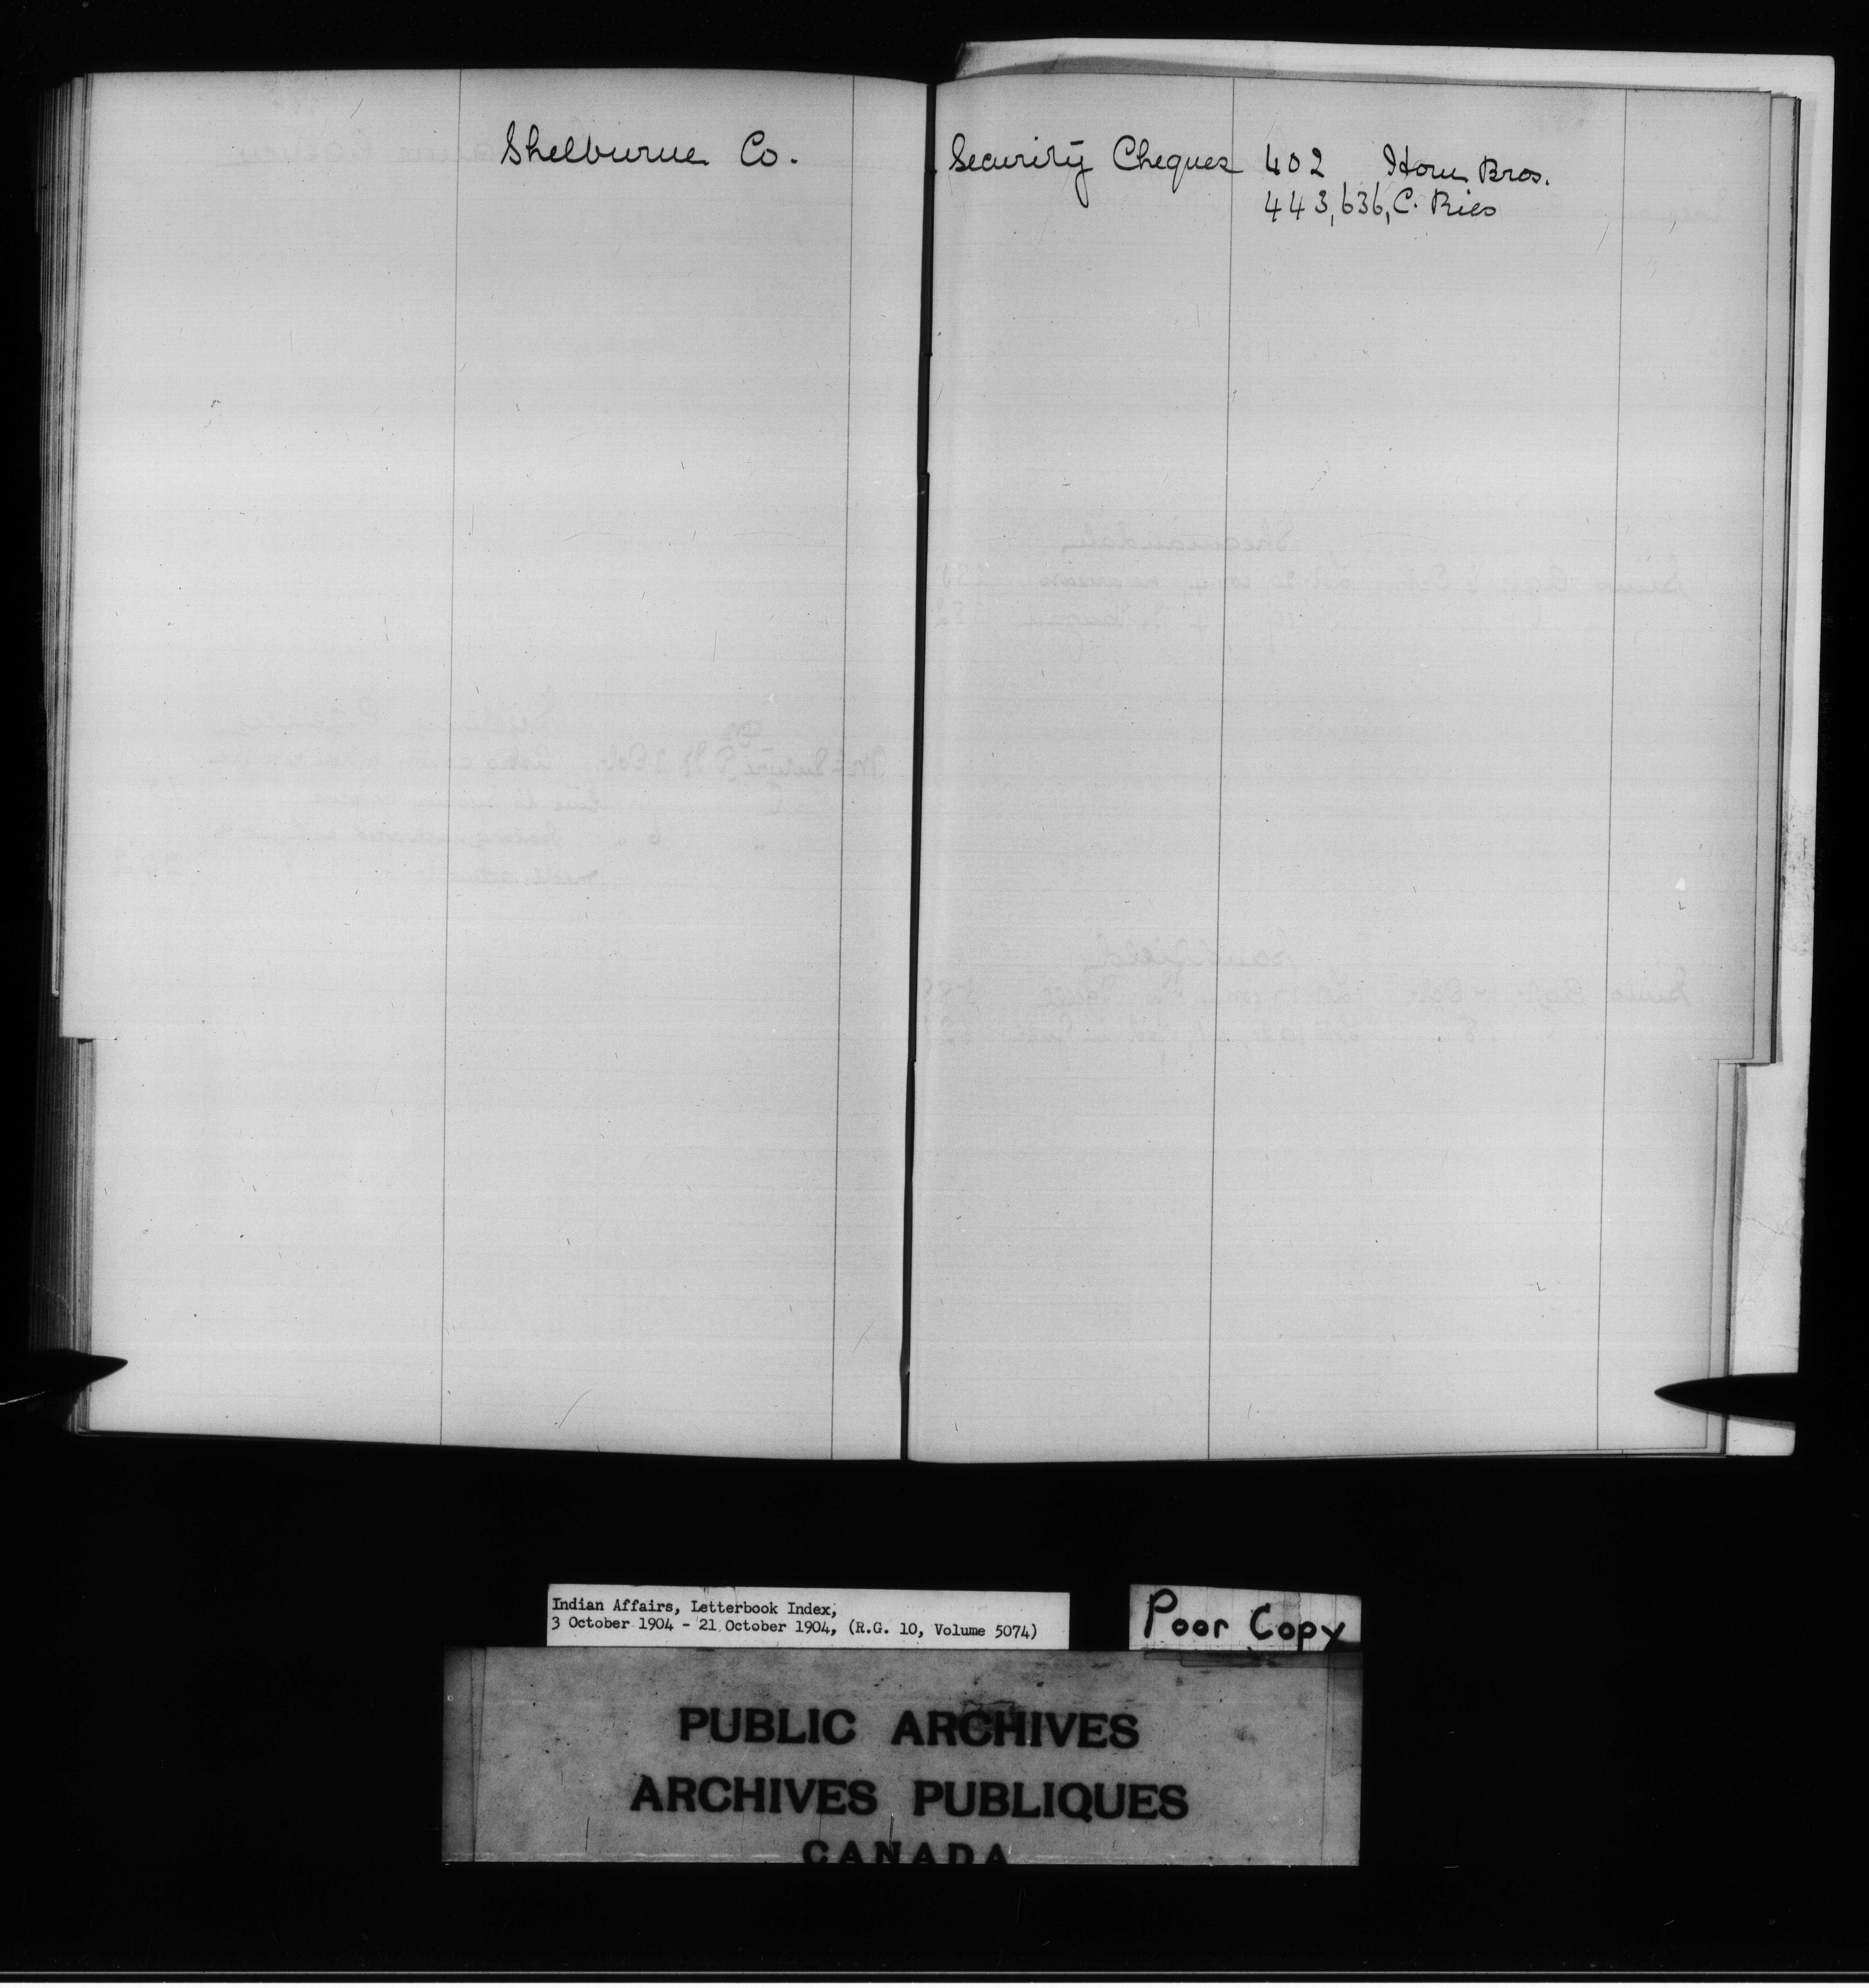 Shelburne Co.
Security Cheques 402 Horn Bros.
443, 636, C. Ries
Indian Affairs, Letterbook Index,
3 October 1904 - 21 October 1904, (R.G. 10, Volume 5074)
Poor Copy
PUBLIC ARCHIVES
ARCHIVES PUBLIQUES
CANADA